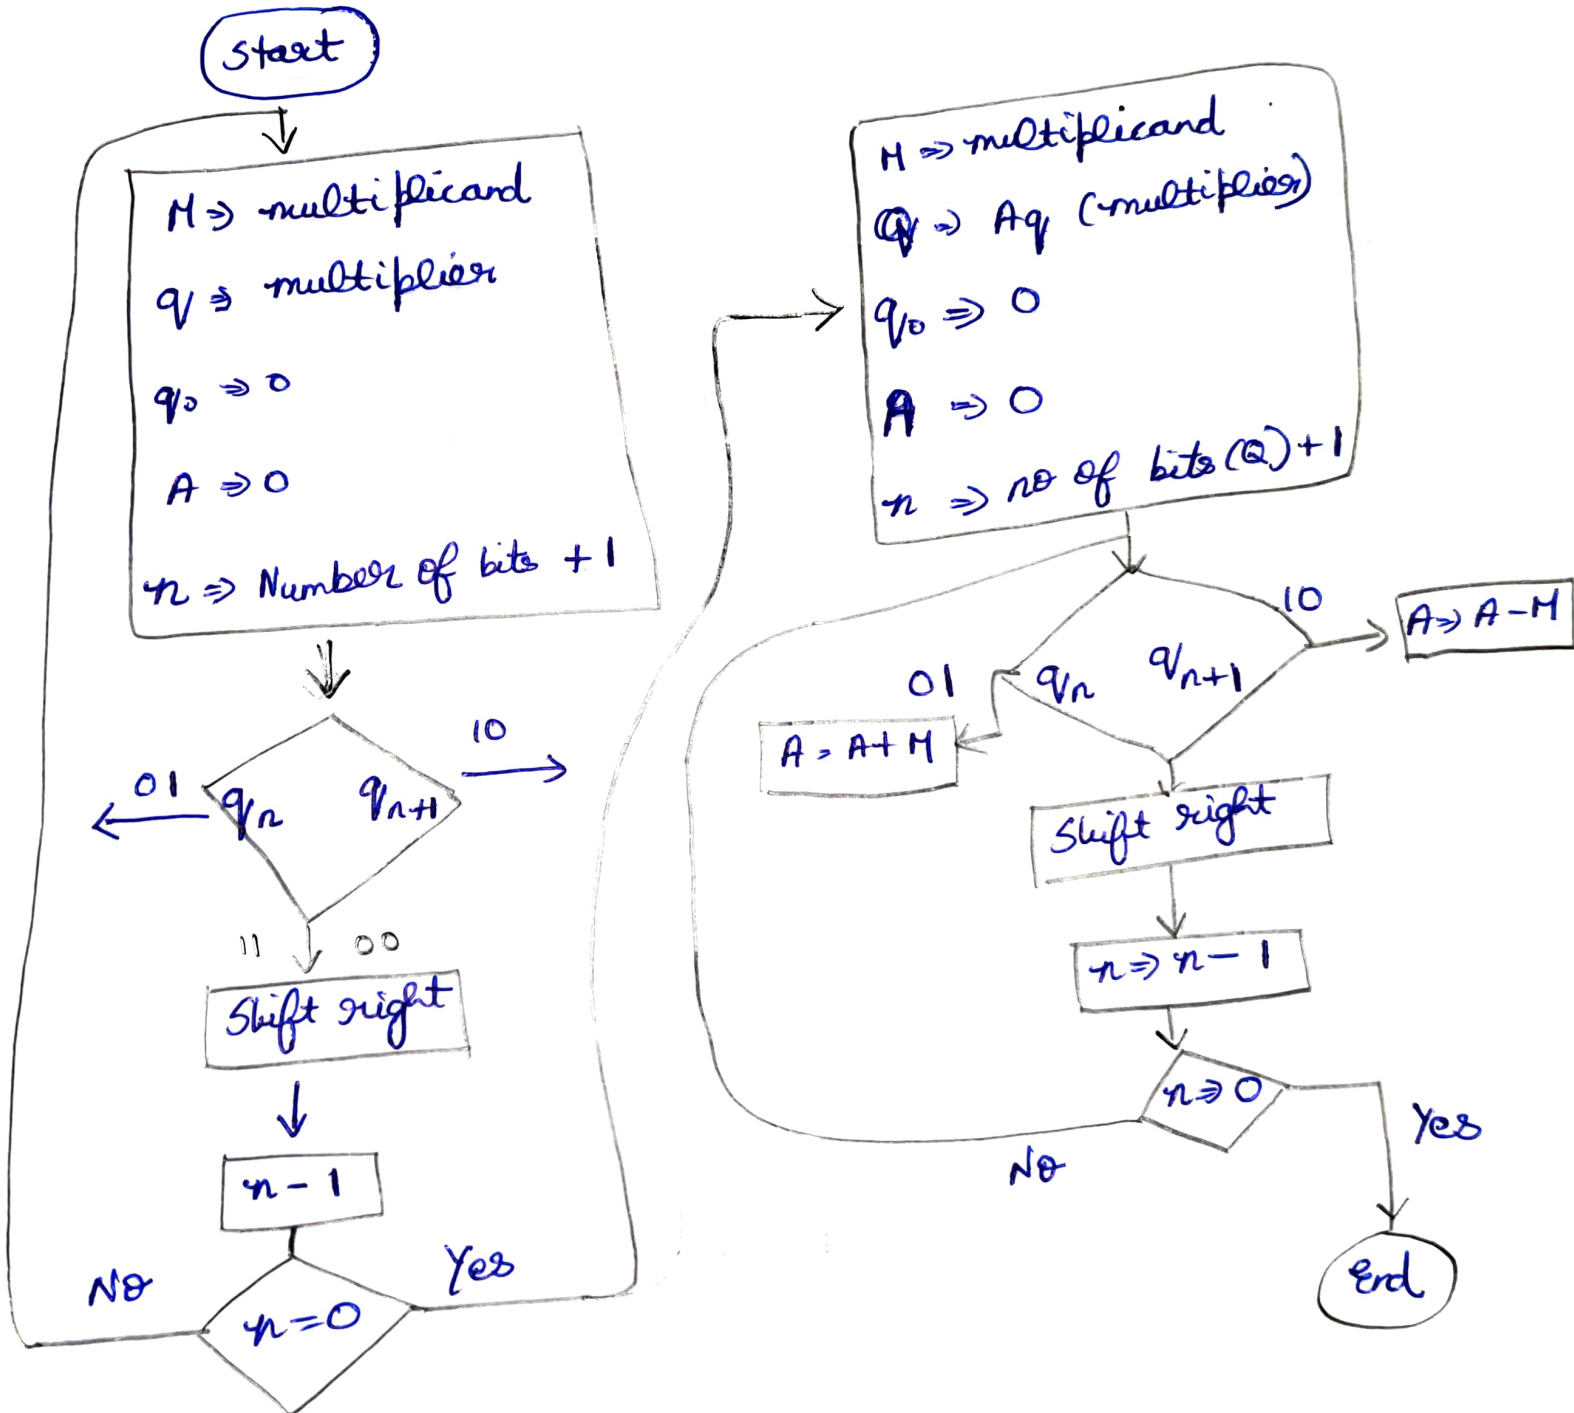 Start
M ⇒ multiplicand
q ⇒ multiplier
q₀ ⇒ 0
A ⇒ 0
n ⇒ Number of bits + 1
10
01
qₙ qₙ₊₁
11 00
Shift right
n - 1
No
Yes
n = 0
M ⇒ multiplicand
Q ⇒ Aq (multiplier)
q₀ ⇒ 0
A ⇒ 0
n ⇒ no of bits (Q) + 1
10
A ⇒ A - M
01
qₙ qₙ₊₁
A = A + M
Shift right
n ⇒ n - 1
n ⇒ 0
Yes
No
End